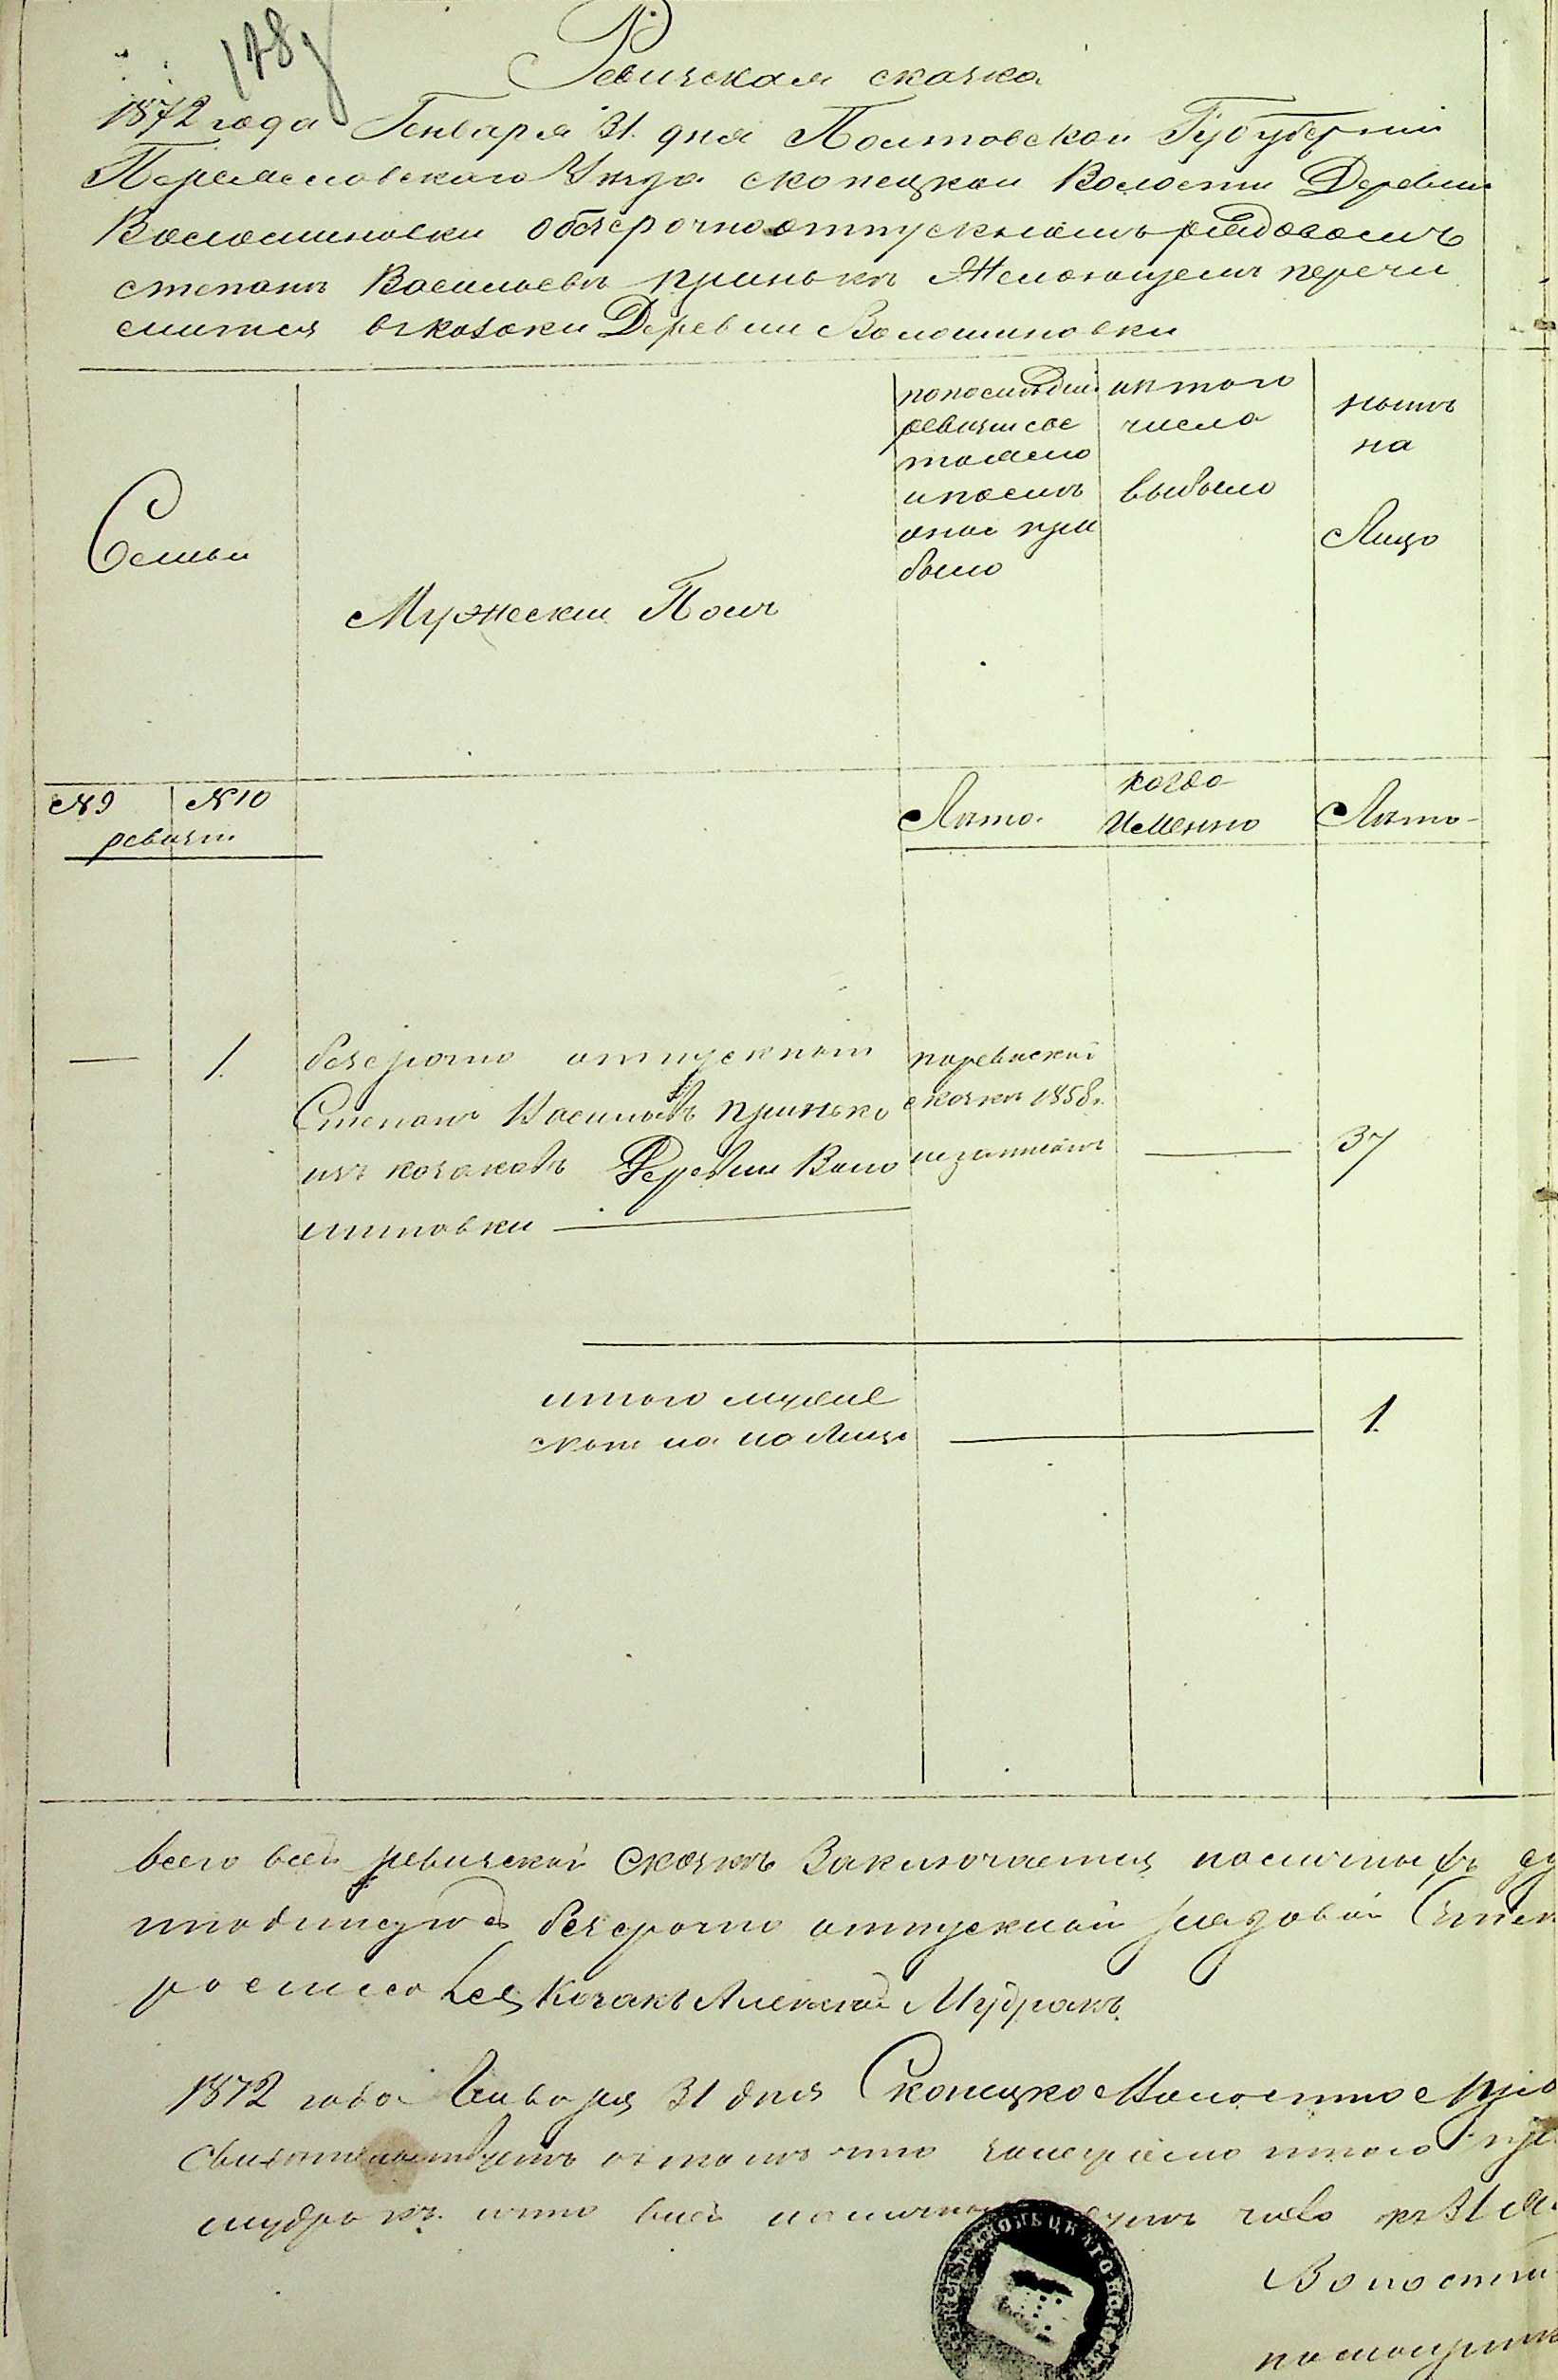 178
Ревизская сказка
1872 года Генваря 31 дня Полтовской Губуберний
Переясловского Уезда скопецкой Волости Деревни
Волошиновки обезсрочноотпускномъ рядовомъ
степанъ Васильевъ принькъ Желающемъ перечи
слится въ козаки Деревни Волошиновки
Семьи
Мужески Полъ
попоследней
ревизии сос
тояло
ипосле
оной при
было
изтого
числа
выбыло
ныне
на
Лицо
№ 9
№ 10
ревизии
Лета.
когда
Именно
Лета
—
1.
безсрочно отпускный
Степанъ Васильевъ принько
изъ козаковъ Деревни Воло
шиновки
поревиской
сказке 1858 г.
незаписанъ
—
37
итого муже
ска на Лицо
1.
всего всей ревизской сказке Заключается наличныхъ ду
безсрочно отпускной рядовой Степ
росписался Козакъ Алексей Мудракъ.
1872 года Января 31 дня Скопецкое Волостное Пра
свидетельствуетъ втомъ что
мудракъ. что всей наличной
Волостн
помощник